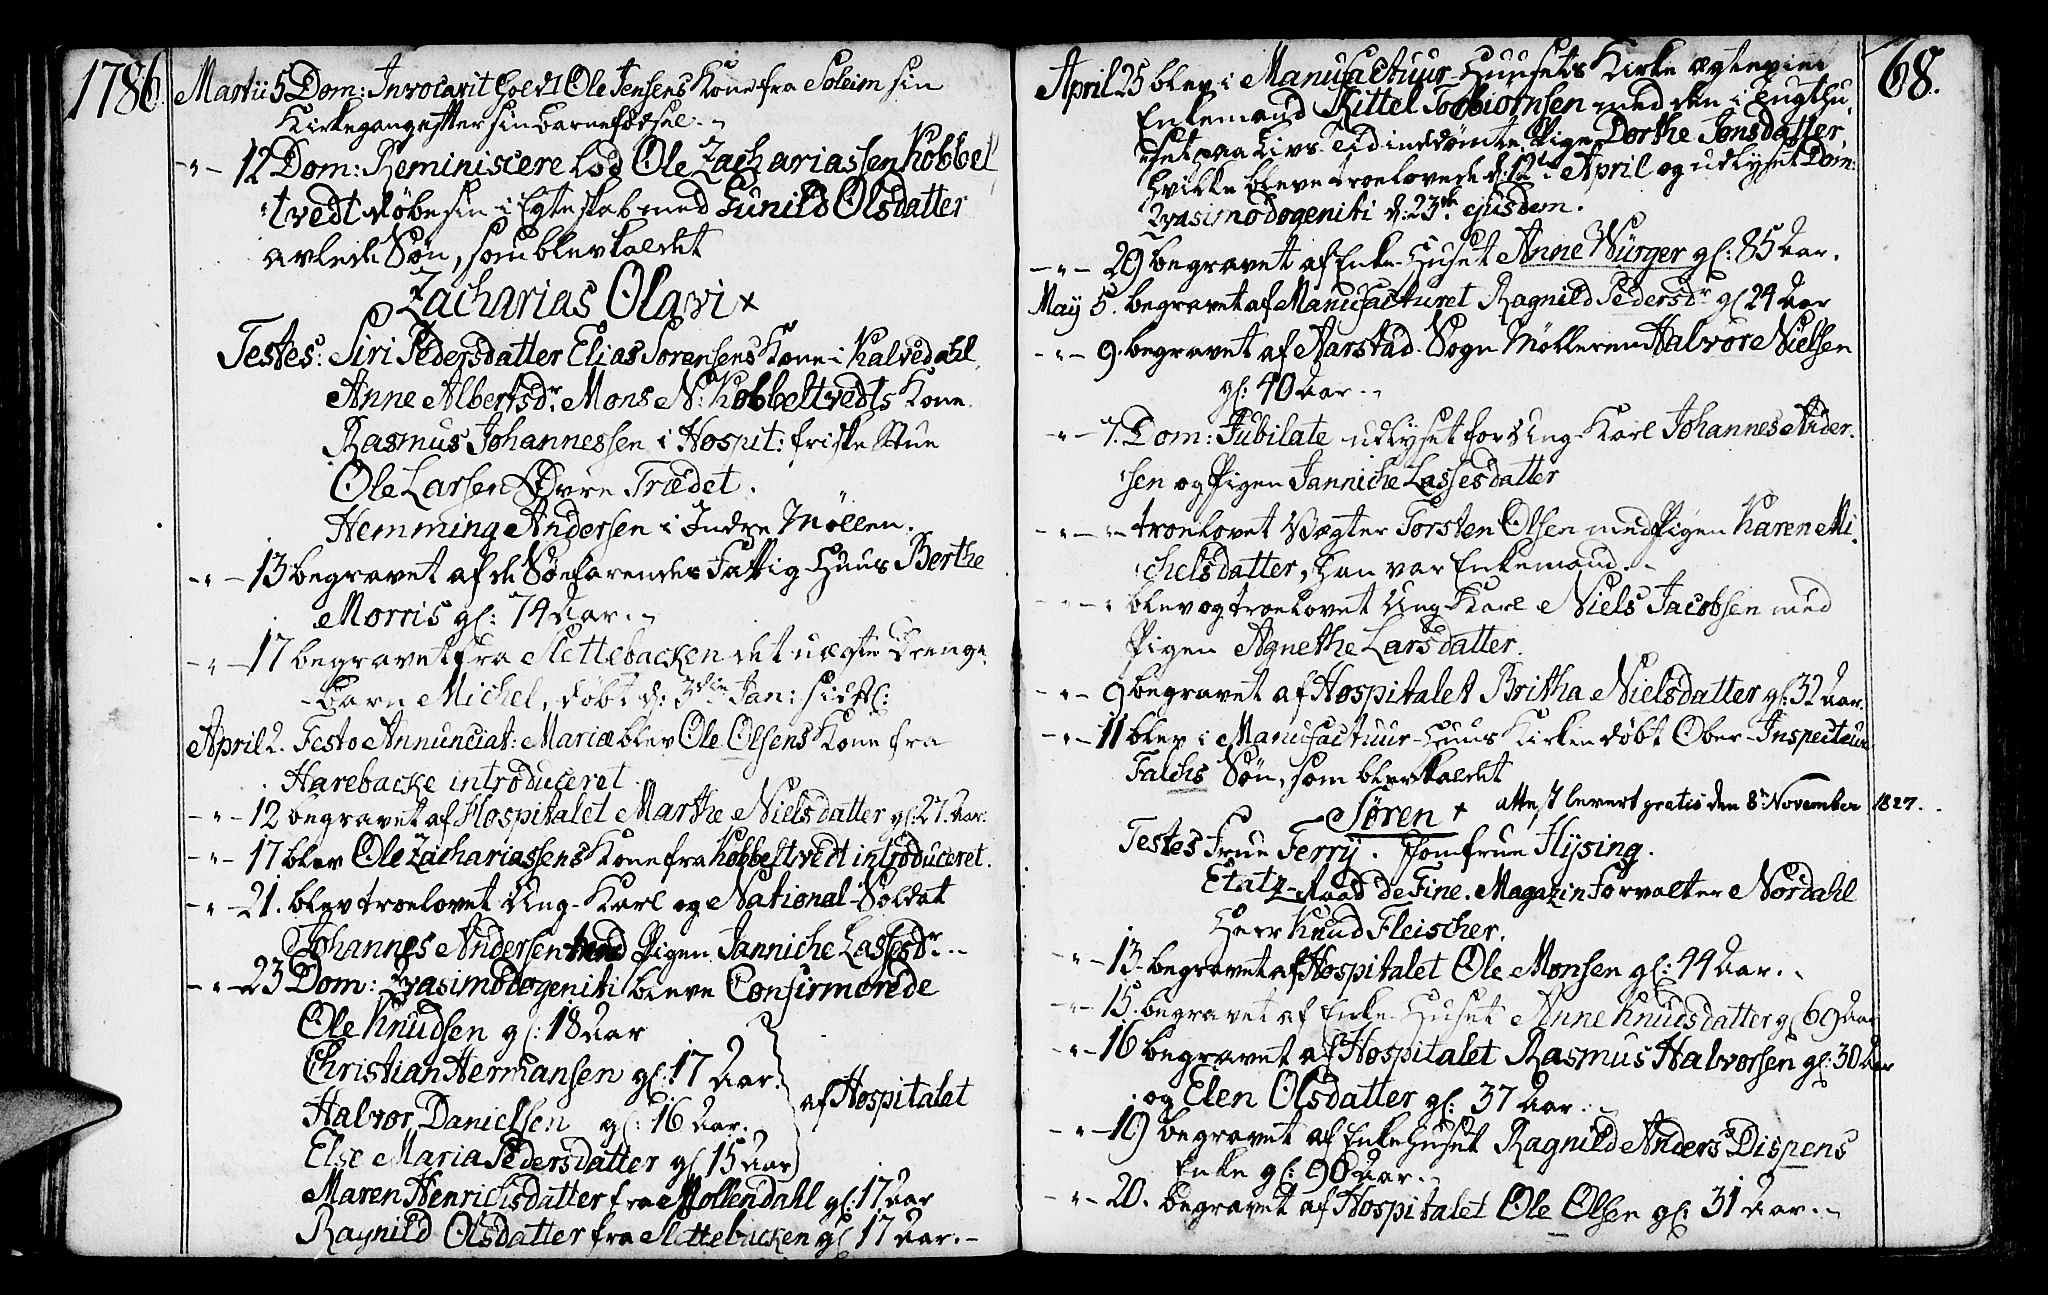 1786
Martii 5 Dom: Invocavit holdt Ole Jensens Kone fra Soleim sin
Kirkegang efter sin barnefødsel.
-"- 12 Dom: Reminiscere lod Ole Zachariassen Kobbel
tvedt døbe sin i Egteskab med Gunild Olsdatter
avlede Søn, som blev kaldet
Zacharias Olavi +
Testes: Siri Pedersdatter Elias Sorensens Kone i Kalvedahl
Anne Albertsdr. Mons N: Kobbeltvedts Kone
Rasmus Johannessen i Hospit: friske Stue
Ole Larsen Øvre Trædet.
Hemming Andersen i Indre Møllen.
-"- 13 begravet af de Søefarendes Fattig-Huus Berthe
Morris gl: 74 Aar.
-"- 17 begravet fra Slettebacken det uægte Drenge
-barn Michel, døbt d: 3die Jan: sidstl:
April 2. Festo Annunciat: Mariæ blev Ole Olsens Kone fra
Harebacke introduceret.
-"- 12 begravet af Hospitalet Marthe Nielsdatter gl: 27. Aar.
-"- 17 blev Ole Zachariassens Kone fra Kobbeltvedt introduceret.
-"- 21. blev troelovet Ung-Karl og National-Soldat
Johannes Andersen med Pigen Janniche Lassesdr.
-"- 23 Dom: Qvasimodogeniti bleve Confirmerede
Ole Knudsen gl: 18 Aar
Christian Hermansen gl: 17 Aar.
Halvor Danielsen gl: 16 Aar.
af Hospitalet
Else Maria Pedersdatter gl 15 Aar
Maren Henrichsdatter fra Møllendahl gl: 17 Aar
Ragnild Olsdatter fra Slettebacken gl 17 Aar.
68.
April 25 blev i Manufactuur-Huusets Kirke ægteviet
Enkemand Kittel Torbiørnsen med den i Tugthu-
set paa Livs-Tid inddømte Pige Dorthe Jonsdatter
hvilke bleve troelovede d: 12te April og udlyset Dom:
Qvasimodogeniti d: 23de ejusdem.
-"- 29 begravet af Enke-Huset Anne Würger gl: 85 Aar.
May 5. begravet af Manufacturet Ragnild Pedersdr gl 24 Aar
-"- 9. begravet af Aarstad Sogn Mølleren Halvor Nielsen
gl: 40 Aar.
-"- 7. Dom: Jubilate udlyset for Ung-Karl Johannes Ander-
sen og Pigen Janniche Lassesdatter
-"- "- troelovet Vægter Torsten Olsen med Pigen Karen Mi-
chelsdatter, han var Enkemand.
-"- " blev og troelovet Ung-Karl Niels Jacobsen med
Pigen Agnethe Larsdatter.
-"- 9 begravet af Hospitalet Britha Nielsdatter gl: 32 Aar.
-"- 11 blev i Manufactuur-Huus Kirken døbt Ober-Inspecteur
Falchs Søn, som blev kaldet
Søren + attest levert gratis den 8de November 1827.
Testes Frue Ferry. Jomfrue Hysing.
Etatz-Raad De Fine. Magazin Forvalter Nordahl
Herr Knud Fleischer.
-"- 13. begravet af Hospitalet Ole Monsen gl: 44 Aar.
-"- 15. begravet af Enke-Huset Anne Knudsdatter gl 69 Aar
-"- 16 begravet af Hospitalet Rasmus Halvorsen gl: 30 Aar
og Elen Olsdatter gl: 37 Aar.
-"- 19 begravet af Enke Huset Ragnild Anders Dispens
Enke gl: 90 Aar.
-"- 20. begravet af Hospitalet Ole Olsen gl: 31 Aar.